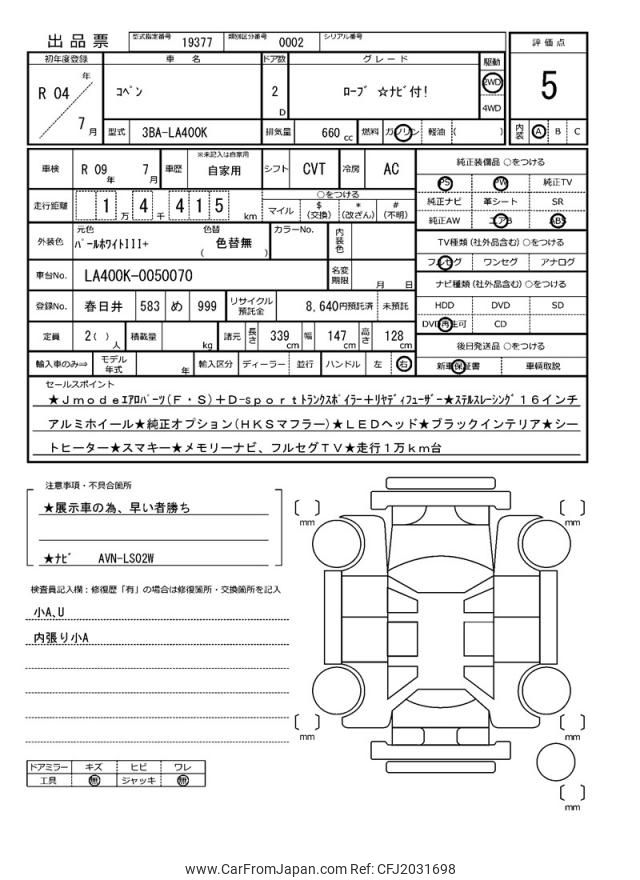 出品票 型式指定番号 19377 類別区分番号 0002 シリアル番号
評価点
5
内装 A B C
初年度登録 車名 ドア数 グレード 駆動
R 04 年 7 月
コペン 2 D ローブ ☆ナビ付! 2WD 4WD
型式 3BA-LA400K 排気量 660 cc 燃料 ガソリン 軽油 ( )
車検 R 09 年 7 月 車歴 ※未記入は自家用 自家用 シフト CVT 冷房 AC
走行距離 1 万 4 千 415 km ○をつける マイル $(交換) *(改ざん) #(不明)
外装色 元色 パールホワイトIII+ 色替 ( 色替無 ) カラーNo. 内装色
車台No. LA400K-0050070 名変期限 月 日
登録No. 春日井 583 め 999 リサイクル預託金 8,640円預託済 未預託
定員 2( )人 積載量 kg 諸元 長さ 339cm 幅 147cm 高さ 128cm
輸入車のみ⇒ モデル年式 年 輸入区分 ディーラー 並行 ハンドル 左 右
純正装備品 ○をつける
PS PW 純正TV
純正ナビ 革シート SR
純正AW エアB ABS
TV種類(社外品含む)○をつける
フルセグ ワンセグ アナログ
ナビ種類(社外品含む)○をつける
HDD DVD SD
DVD再生可 CD
後日発送品 ○をつける
新車保証書 車輌取説
セールスポイント
★Jmodeエアロパーツ(F・S)+D-sportトランクスポイラー+リヤディフューザー★ステルスレーシング16インチ
アルミホイール★純正オプション(HKSマフラー)★LEDヘッド★ブラックインテリア★シー
トヒーター★スマキー★メモリーナビ、フルセグTV★走行1万km台
注意事項・不具合箇所
★展示車の為、早い者勝ち
★ナビ AVN-LS02W
検査員記入欄:修復歴「有」の場合は修復箇所・交換箇所を記入
小A,U
内張り小A
ドアミラー キズ ヒビ ワレ
工具 無 ジャッキ 無
mm
mm
mm
mm
mm
www.CarFromJapan.com Ref: CFJ2031698